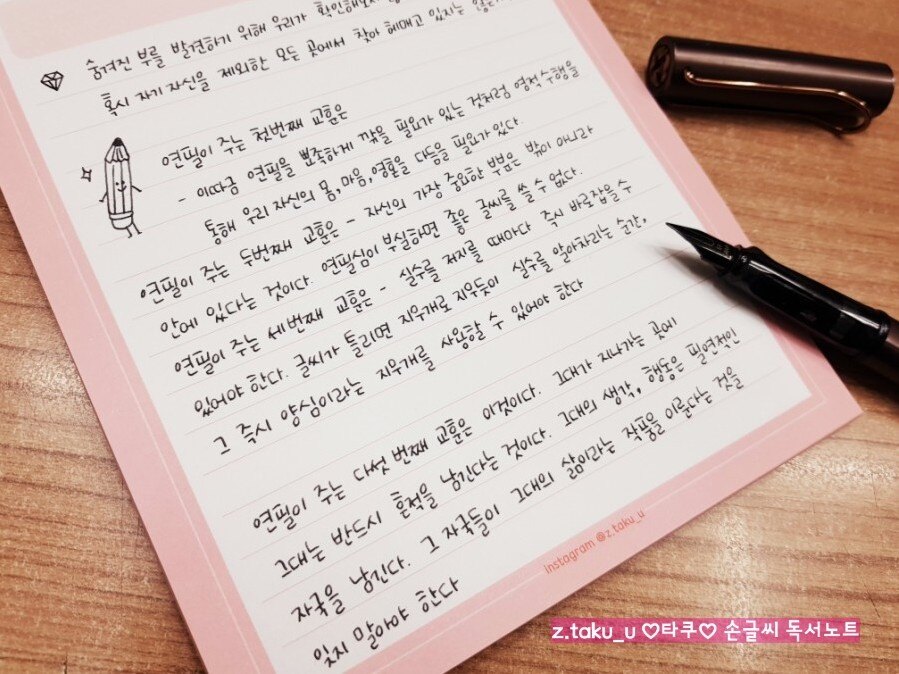 숨겨진 부를 발견하기 위해 우리가 확인해보지
혹시 자기 자신을 제외한 모든 곳에서 찾아 헤매고 있지는 않은
연필이 주는 첫번째 교훈은
- 이따금 연필을 뾰족하게 깎을 필요가 있는 것처럼 영적 수행을
통해 우리 자신의 몸, 마음, 영혼을 다듬을 필요가 있다.
연필이 주는 두번째 교훈은 - 자신의 가장 중요한 부분은 밖이 아니라
안에 있다는 것이다. 연필심이 부실하면 좋은 글씨를 쓸 수 없다.
연필이 주는 세번째 교훈은 - 실수를 저지를 때마다 즉시 바로잡을 수
있어야 한다. 글씨가 틀리면 지우개로 지우듯이 실수를 알아차리는 순간,
그 즉시 양심이라는 지우개를 사용할 수 있어야 한다
연필이 주는 다섯 번째 교훈은 이것이다. 그대가 지나가는 곳에
그대는 반드시 흔적을 남긴다는 것이다. 그대의 생각, 행동은 필연적인
자국을 남긴다. 그 자국들이 그대의 삶이라는 작품을 이룬다는 것을
잊지 말아야 한다
Instagram @z.taku_u
z.taku_u ♡타쿠♡ 손글씨 독서노트